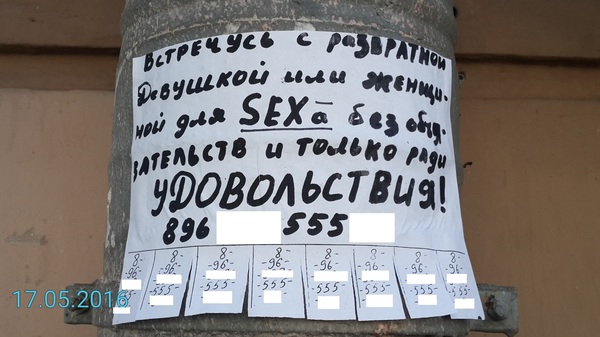 Встречусь с развратной
девушкой или женщи-
ной для SEXа без обя-
зательств и только ради
УДОВОЛЬСТВИЯ!
896 555
8- 8- 8- 8- 8- 8- 8- 8-
-96- -96- -96- -96- -96- -96- -96- -96-
-555- -555- -555- -555- -555- -555- -555- -555-
17.05.2016